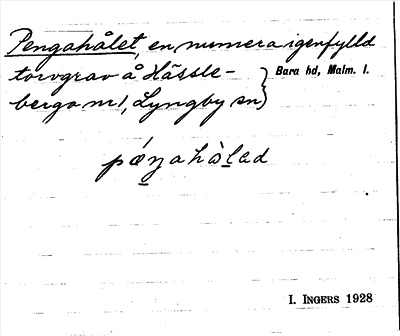 Pengahålet, en numera igenfylld
torvgrav å Hässle-
berga nr 1, Lyngby sn
Bara hd, Malm. l.
páŋahòlad
I. INGERS 1928